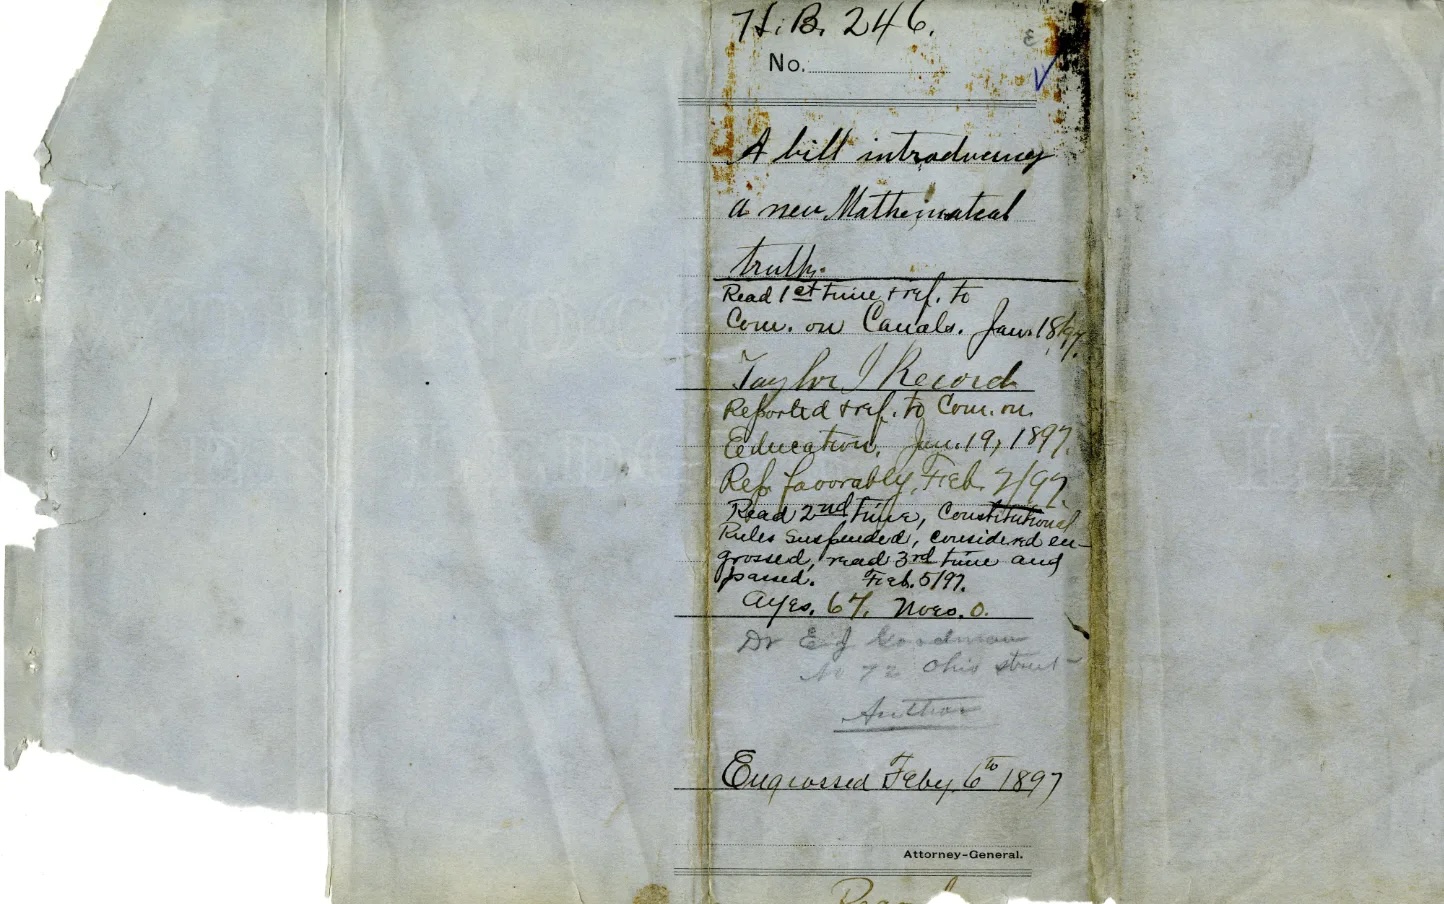 H. B. 246.
No.
A bill introducing
a new Mathematical
truth.
Read 1st time & ref. to
Com. on Canals. Jan. 18/97.
Taylor I Record
Reported & ref. to Com. on
Education. Jan. 19, 1897.
Rep. favorably, Feb. 2/97.
Read 2nd time, Constitutional
Rules suspended, considered en-
grossed, read 3rd time and
passed. Feb. 5/97.
Ayes. 67. Noes. 0.
Dr E J Goodman
No 72 Ohio street
Author
Engrossed Feby. 6th 1897
Attorney-General.